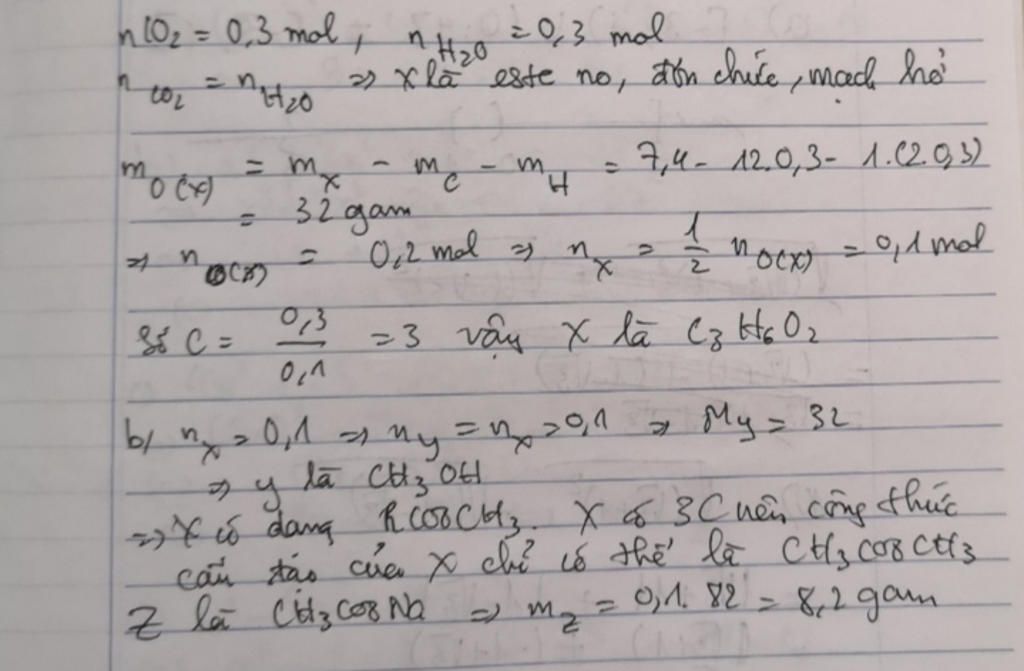 nCO2 = 0,3 mol, nH2O = 0,3 mol
nCO2 = nH2O => X là este no, đơn chức, mạch hở
mO(X) = mX - mC - mH = 7,4 - 12.0,3 - 1.(2.0,3)
= 32 gam
=> nO(X) = 0,2 mol => nX = 1/2 nO(X) = 0,1 mol
Số C = 0,3/0,1 = 3 vậy X là C3H6O2
b/ nX = 0,1 => ny = nX = 0,1 => My = 32
=> y là CH3OH
=> X có dạng RCOOCH3. X có 3C nên công thức
cấu tạo của X chỉ có thể là CH3COOCH3
Z là CH3COONa => mZ = 0,1.82 = 8,2 gam